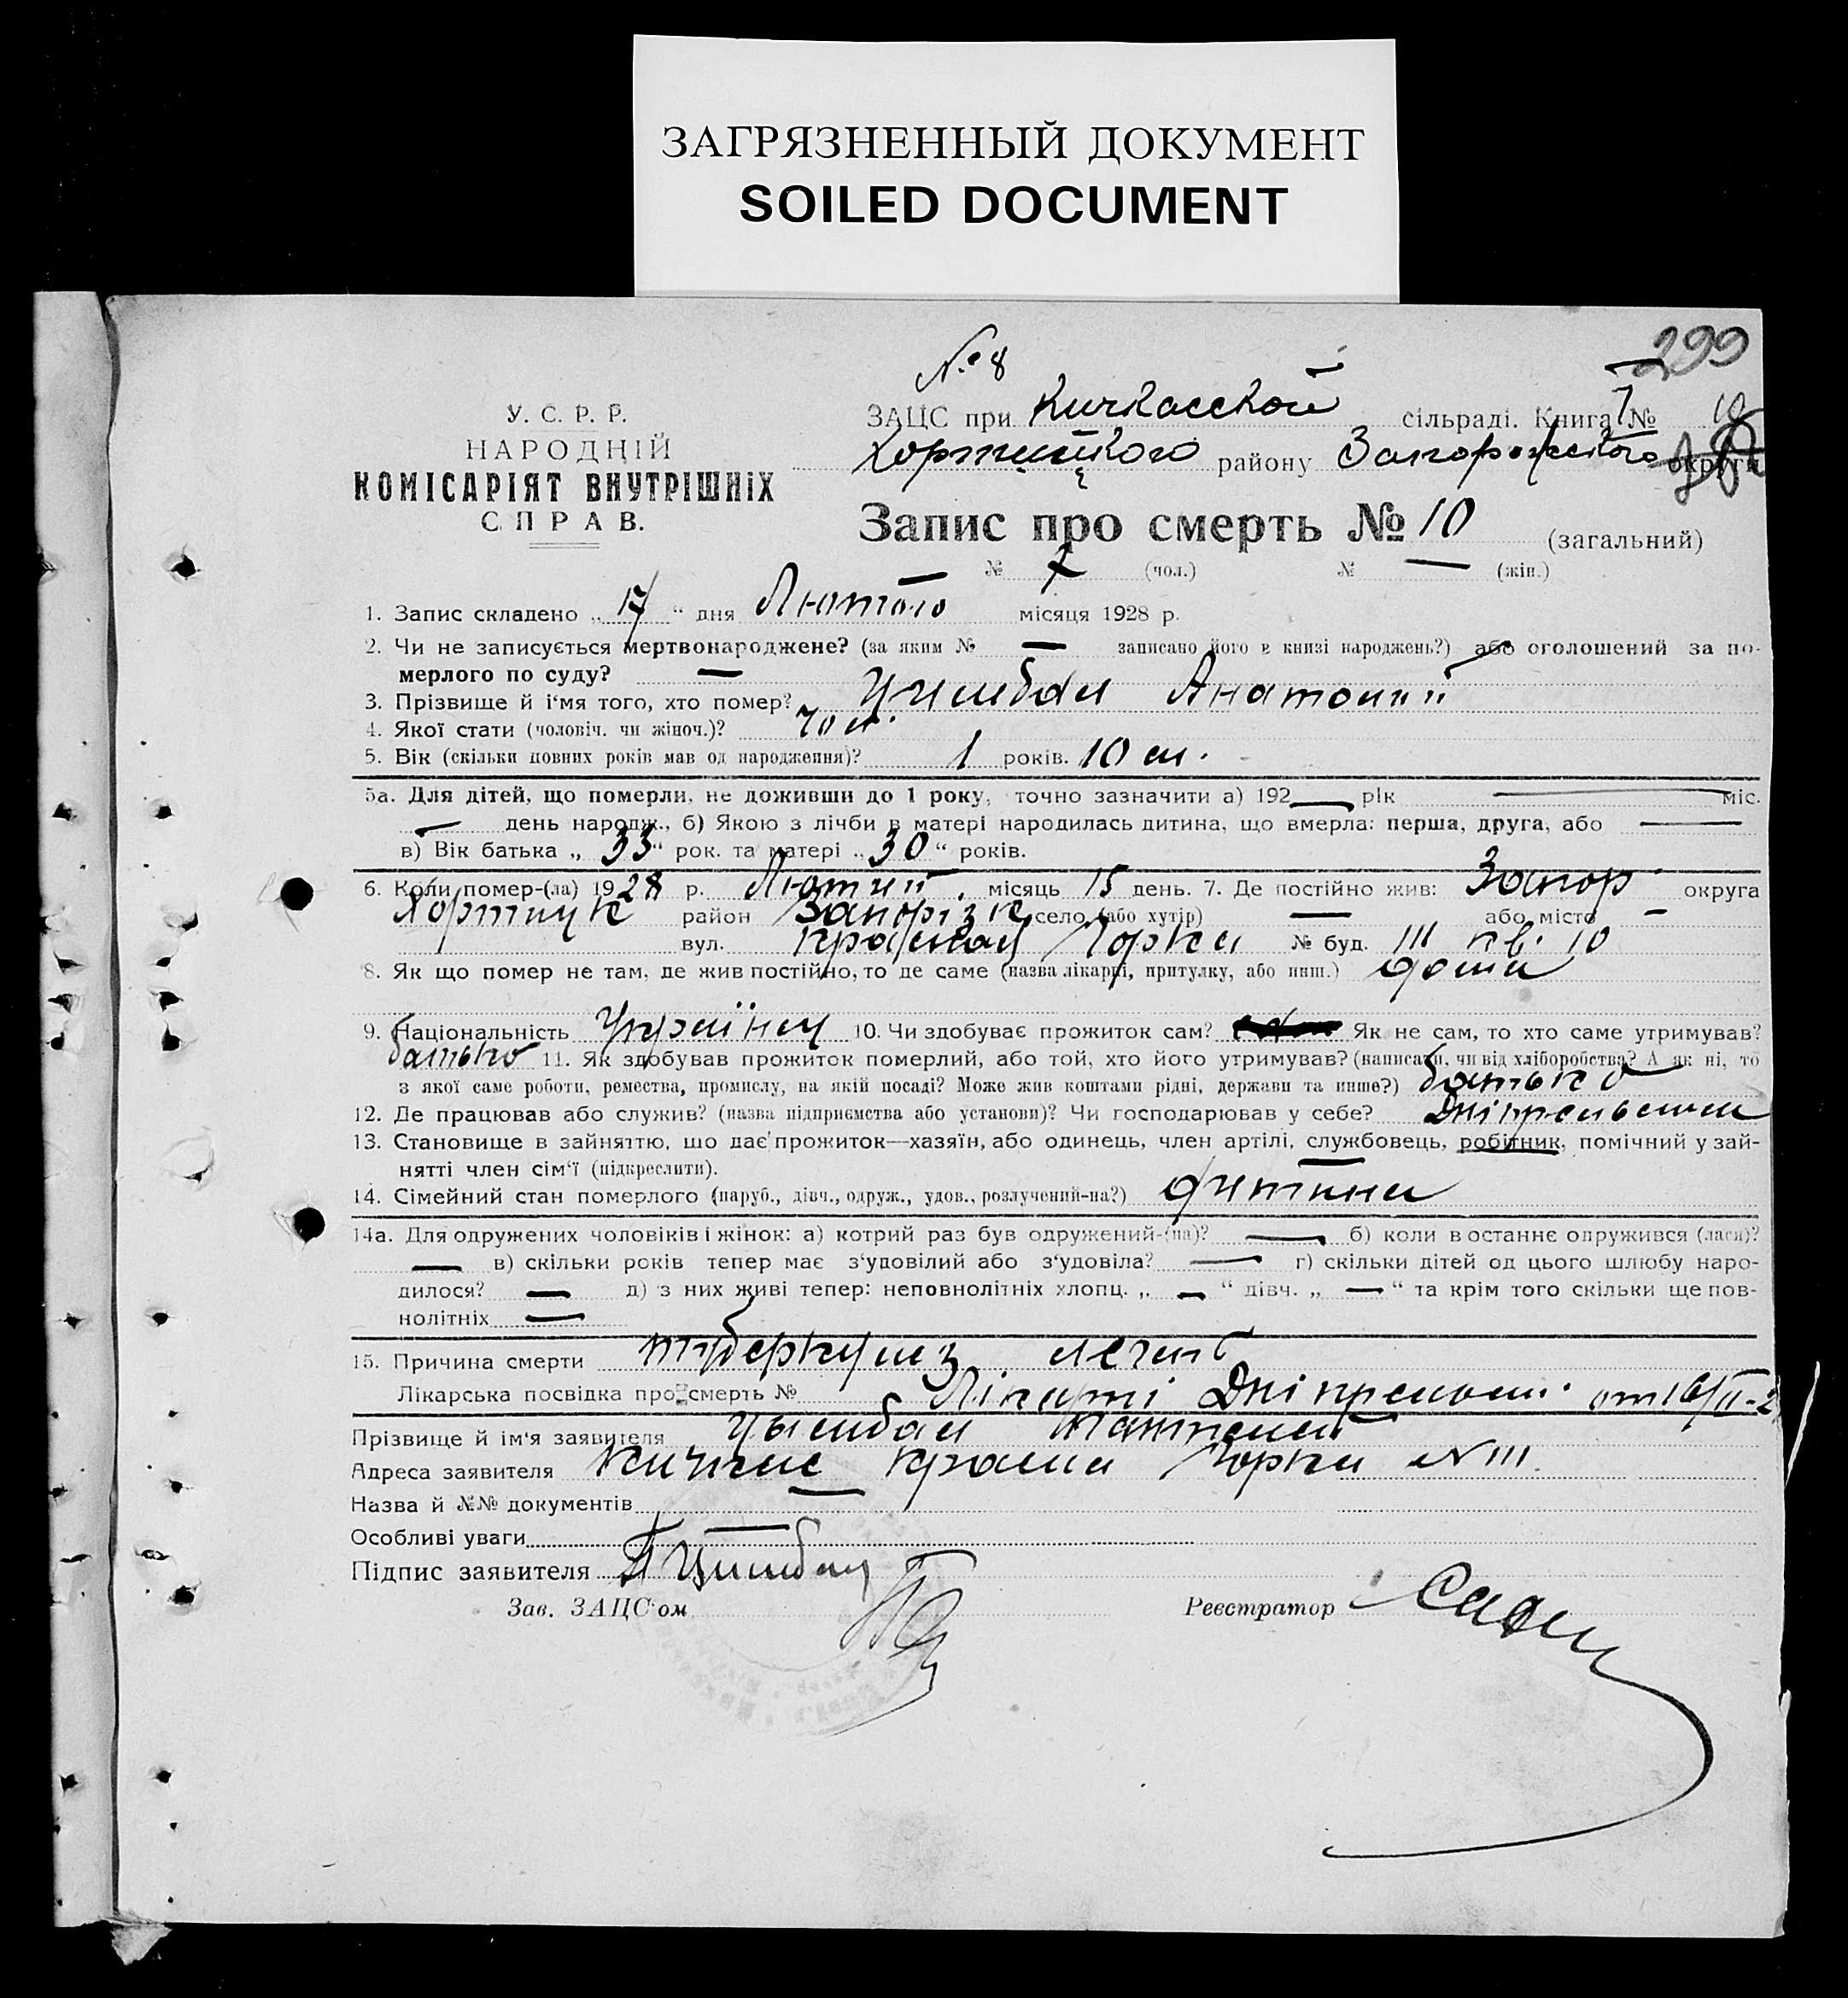 ЗАГРЯЗНЕННЫЙ ДОКУМЕНТ
SOILED DOCUMENT
299
№ 8
У. С. Р. Р.
НАРОДНІЙ
КОМІСАРІЯТ ВНУТРІШНІХ
СПРАВ.
ЗАЦС при Кичкасской сільраді. Книга №
Хортицкого району Запорожского округи
Запис про смерть № 10 (загальний)
№ 7 (чол.) № — (жін.)
1. Запис складено „ 17 “ дня Лютого місяця 1928 р.
2. Чи не записується мертвонароджене? (за яким № — записано його в книзі народжень?) або оголошений за по-
мерлого по суду? —
3. Прізвище й і'мя того, хто помер? Цимбал Анатолий
4. Якої стати (чоловіч. чи жіноч.)? чол.
5. Вік (скільки повних років мав од народження)? 1 років. 10 м.
5а. Для дітей, що померли, не доживши до 1 року, точно зазначити а) 192 — рік — міс.
— день народж., б) Якою з лічби в матері народилась дитина, що вмерла: перша, друга, або —
в) Вік батька „ 33 “ рок. та матері „ 30 “ років.
6. Коли помер-(ла) 1928 р. Лютий місяць 15 день. 7. Де постійно жив: Запор округа
Хортицк район Запоріжк село (або хутір) — або місто —
вул. № буд. 111 кв. 10
8. Як що помер не там, де жив постійно, то де саме (назва лікарні, притулку, або инш.) дома
9. Національність Українец 10. Чи здобуває прожиток сам? Як не сам, то хто саме утримував?
батько 11. Як здобував прожиток померлий, або той, хто його утримував? (написати, чи від хліборобства? А як ні, то
з якої саме роботи, ремества, промислу, на якій посаді? Може жив коштами рідні, держави та инше?) батько
12. Де працював або служив? (назва підприємства або установи)? Чи господарював у себе?
13. Становище в зайняттю, що дає прожиток—хазяїн, або одинець, член артілі, службовець, робітник, помічний у зай-
нятті член сім'ї (підкреслити).
14. Сімейний стан померлого (паруб., дівч., одруж., удов., розлучений-на?) дитина
14а. Для одружених чоловіків і жінок: а) котрий раз був одружений-(на)? — б) коли востаннє одружився (лася)?
— в) скільки років тепер має з'удовілий або з'удовіла? — г) скільки дітей од цього шлюбу наро-
дилося? — д) з них живі тепер: неповнолітніх хлопц. „ — “ дівч. „ — “ та крім того скільки ще пов-
нолітніх —
15. Причина смерти туберкульз легень
Лікарська посвідка про смерть № Лікарні от 16/II-2
Прізвище й ім'я заявителя Цымбал
Адреса заявителя Кичкас Горки № 111.
Назва й №№ документів —
Особливі уваги —
Підпис заявителя П Цимбал
Зав. ЗАЦС'ом Реєстратор